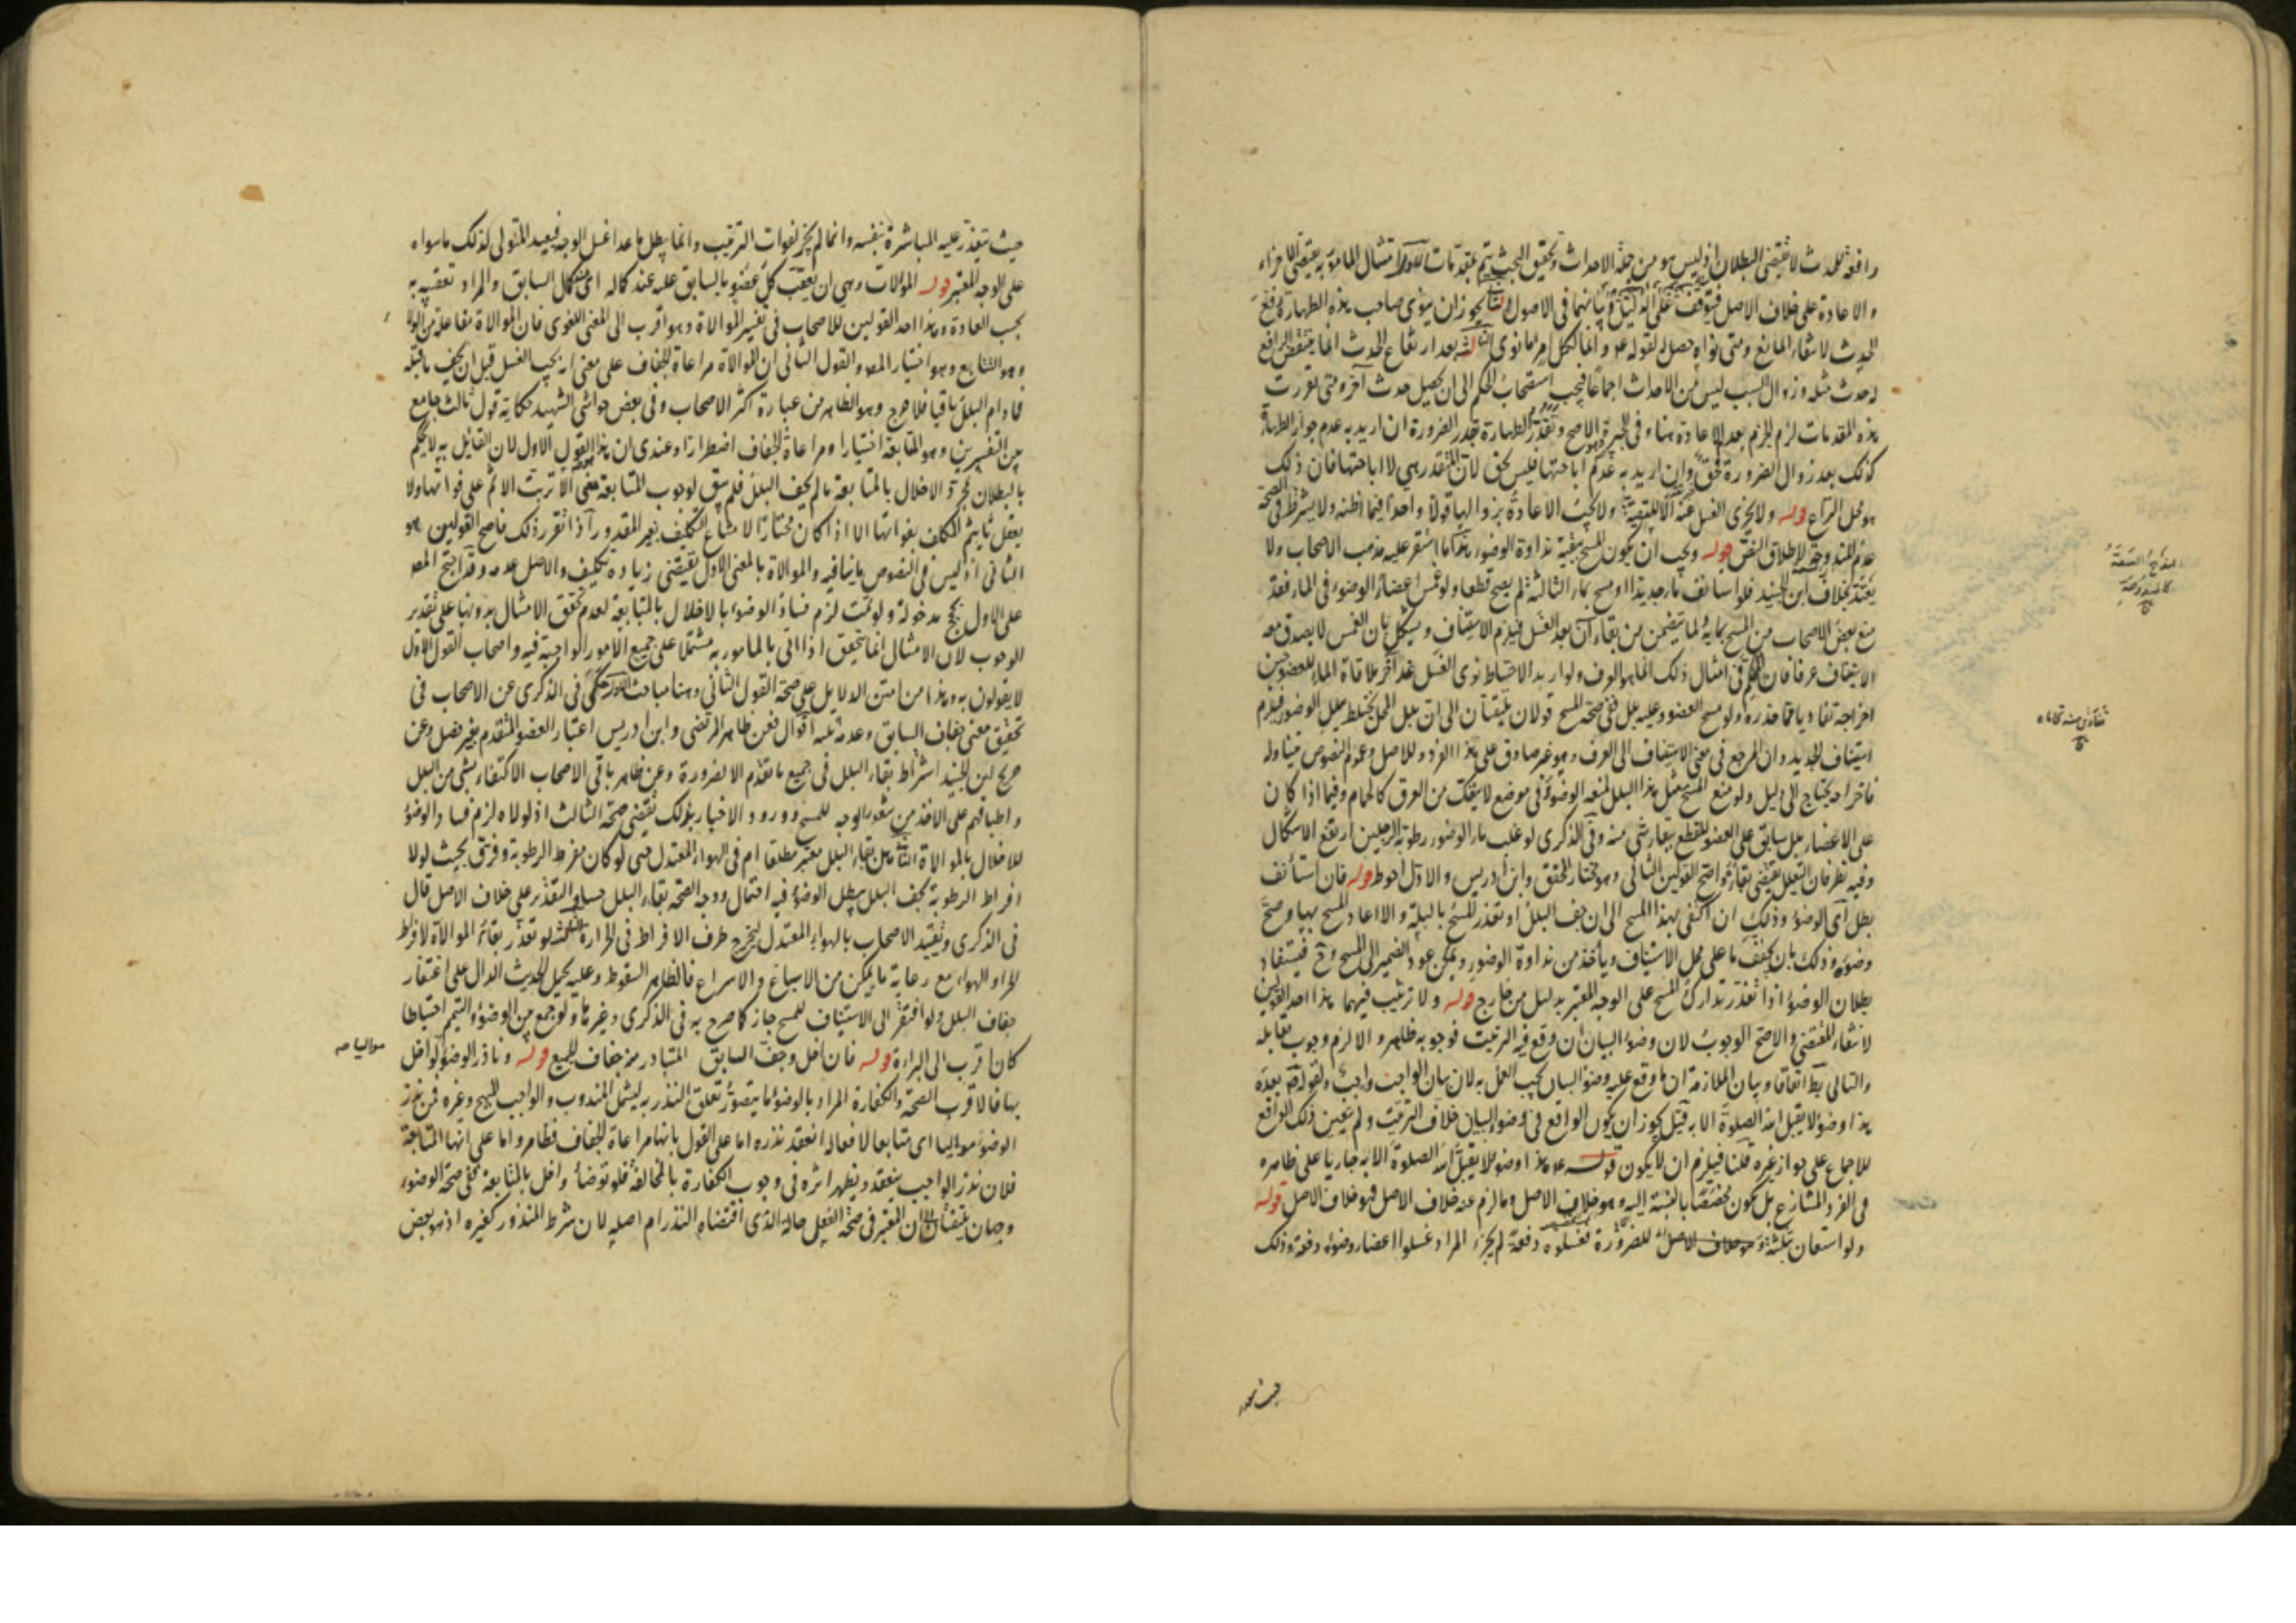 رافعة للحدث لا تقتضى البطلان اذ ليس هو من جملة الاحداث وتحقيق البحث يتم بمقدمات الاول امتثال المامور به يقتضى الاجزاء
والاعادة على خلاف الاصل فيتوقف على الدليل وبيانهما فى الاصول الثانى يجوز ان ينوى صاحب هذه الطهارة رفع
الحدث لانتفاء المانع ومتى نواه حصل لقوله عم وانما لكل امرء ما نوى الثالث بعد ارتفاع الحدث انما ينتقض الرافع
لحدث مثله وزوال السبب ليس من الاحداث اجماعا فيجب استصحاب الحكم الى ان يحصل حدث آخر ومتى تقررت
هذه المقدمات لزم الجزم بعدم الاعادة هنا وفى الجبيرة الاصح وتقدر الطهارة بقدر الضرورة ان اريد به عدم جواز الطهارة
كذلك بعد زوال الضرورة فحق وان اريد به عدم اباحتها فليس بحق لان المتقدر هى لا اباحتها فان ذلك
هو محل النزاع قوله ولا يجزى الغسل عنه الا للتقية ولا يجب الاعادة بزوالها قولا واحدا فيما اظنه ولا يشترط فى الصحة
عدم المندوحة لاطلاق النص قوله ويجب ان يكون المسح ببقية نداوة الوضوء هذا ما استقر عليه مذهب الاصحاب ولا
يعتد بخلاف ابن الجنيد فلو استانف ماء جديدا او مسح بماء الثالثة لم يصح قطعا ولو غمس اعضاء الوضوء فى الماء دفعة
منع بعض الاصحاب من المسح بمائه لما يتضمن من بقاء آن بعد الغسل فيلزم الاستيناف ويشكل بان الغمس لا يصدق معه
الاستيناف عرفا فان الحكم فى امثال ذلك انما هو العرف ولو اريد الاحتياط نوى الغسل عند آخر ملاقاة الماء للعضو حين
اخراجه تفاديا مما حذره ولو مسح العضو وعليه بلل ففى صحة المسح قولان يلتفتان الى ان بلل المحل يختلط ببلل الوضوء فيلزم
استيناف الجديد وان المرجع فى معنى الاستيناف الى العرف وهو غير صادق على هذا الفرد وللاصل وعموم النصوص يتناوله
فاخراجه يحتاج الى دليل ولو منع المسح مثل هذا البلل لمنعه الوضوء فى موضع لا ينفك من العرق كالحمام وفيما اذا كان
على الاعضاء بلل سابق على العضو للقطع ببقاء شئ منه وفى الذكرى لو غلب ماء الوضوء رطوبة الرجلين ارتفع الاشكال
وفيه نظر فان التعليل يقتضى بقاءه واصح القولين الثانى وهو مختار المحقق وابن ادريس والاول احوط قوله فان استأنف
بطل اى الوضوء وذلك ان اكتفى بهذا المسح الى ان جف البلل او تعذر المسح بالبلة والا اعاد المسح بها وصح
وضوءه وذلك بان يجفف ما على محل الاستيناف ويأخذ من نداوة الوضوء ويمكن عود الضمير الى المسح وح فيستفاد
بطلان الوضوء اذا تعذر تدارك المسح على الوجه المعتبر بدليل من خارج قوله ولا ترتيب فيهما هذا احد القولين
لانتفاء المقتضى والاصح الوجوب لان وضوء البيان ان وقع فيه الترتيب فوجوبه ظاهر والا لزم وجوب مقابله
والتالى بط اتفاقا وبيان الملازمة ان ما وقع عليه وضوء البيان يجب العمل به لان بيان الواجب واجب ولقوله ص بعده
هذا وضوء لا يقبل الله الصلوة الا به قيل يجوز ان يكون الواقع فى وضوء البيان خلاف الترتيب ولم يتعين ذلك الواقع
للاجماع على جواز غيره قلنا فيلزم ان لا يكون قوله عم هذا وضوء لا يقبل الله الصلوة الا به جاريا على ظاهره
فى الفرد المتنازع بل يكون مخصصا بالنسبة اليه وهو خلاف الاصل وما لزم عنه خلاف الاصل فهو خلاف الاصل قوله
ولو استعان بثلثة للضرورة فغسلوه دفعة لم يجزء المراد غسلوا اعضاء وضوءه دفعة وذلك
حيث تعذر
حيث يتعذر عليه المباشرة بنفسه وانما لم يجز لفوات الترتيب وانما يبطل ما عدا غسل الوجه فيعيد المتولى لذلك ما سواه
على الوجه المعتبر قوله الموالات وهى ان يعقب كل عضو بالسابق عليه عند كماله اى عند كمال السابق والمراد تعقيبه به
بحسب العادة وهذا احد القولين للاصحاب فى تفسير الموالاة وهو اقرب الى المعنى اللغوى فان الموالاة مفاعلة من الولا
وهو التتابع وهو اختيار المصه والقول الثانى ان الموالاة مراعاة الجفاف على معنى انه يجب الغسل قبل ان يجف ما قبله
فما دام البلل باقيا فلا حرج وهو الظاهر من عبارة اكثر الاصحاب وفى بعض حواشى الشهيد حكاية قول ثالث جامع
بين التفسيرين وهو المتابعة اختيارا ومراعاة الجفاف اضطرارا وعندى ان هذا القول الاول لان القائل به لا يحكم
بالبطلان بمجرد الاخلال بالمتابعة ما لم يجف البلل فلم يبق لوجوب المتابعة معنى الا ترتب الاثم على فواتها ولا
يعقل تاثيم المكلف بفواتها الا اذا كان مختارا لامتناع التكليف بغير المقدور اذا تقرر ذلك فاصح القولين هو
الثانى اذ ليس فى النصوص ما ينافيه والموالاة بالمعنى الاول يقتضى زيادة تكليف والاصل عدمه وقد احتج المصه
على الاول بحجج مدخولة ولو تمت لزم فساد الوضوء بالاخلال بالمتابعة لعدم تحقق الامتثال بدونها على تقدير
الوجوب لان الامتثال انما يتحقق اذا اتى بالمامور به مشتملا على جميع الامور الواجبة فيه واصحاب القول الاول
لا يقولون به وهذا من امتن الدلايل على صحة القول الثانى وهنا مباحث الاول حكى فى الذكرى عن الاصحاب فى
تحقيق معنى جفاف السابق وعدمه ثلثة اقوال فعن ظاهر المرتضى وابن ادريس اعتبار العضو المتقدم بغير فصل وعن
صريح ابن الجنيد اشتراط بقاء البلل فى جميع ما تقدم الا لضرورة وعن ظاهر باقى الاصحاب الاكتفاء بشئ من البلل
واطباقهم على الاخذ من شعور الوجه للمسح وورود الاخبار بذلك يقتضى صحة الثالث اذ لولاه لزم فساد الوضوء
للاخلال بالموالاة الثانى هل بقاء البلل معتبر مطلقا ام فى الهواء المعتدل حتى لو كان مفرط الرطوبة وفرق بحيث لولا
افراط الرطوبة لجف البلل يبطل الوضوء فيه احتمال ووجه الصحة بقاء البلل حسا والتقدير على خلاف الاصل قال
فى الذكرى وتقييد الاصحاب بالهواء المعتدل ليخرج طرف الافراط فى الحرارة الثالث لو تعذر بقاء الموالاة لافراط
الحر او الهواء مع رعاية ما يمكن من الاسباغ والاسراع فالظاهر السقوط وعليه يحمل الحديث الدال على اغتفار
جفاف البلل ولو افتقر الى الاستيناف للمسح جاز كما صرح به فى الذكرى وغيرها ولو جمع بين الوضوء والتيمم احتياطا
كان اقرب الى البراءة قوله فان اخل وجف السابق المتبادر منه جفاف الجميع قوله وناذر الوضوء لو اخل
مواليا صه
بها فالاقرب الصحة والكفارة المراد بالوضوء ما يتصور تعلق النذر به ليشمل المندوب والواجب المبيح وغيره فمن نذر
الوضوء مواليا اى متتابعا لافعاله انعقد نذره اما على القول بانها مراعاة الجفاف فظاهر واما على انها المتابعة
فلان نذر الواجب ينعقد ويظهر اثره فى وجوب الكفارة بالمخالفة فلو توضأ واخل بالمتابعة ففى صحة الوضوء
وجهان يلتفتان الى ان المعتبر فى صحة الفعل حاله الذى اقتضاه النذر ام اصله لان شرط المنذور كغيره اذ هو بعض